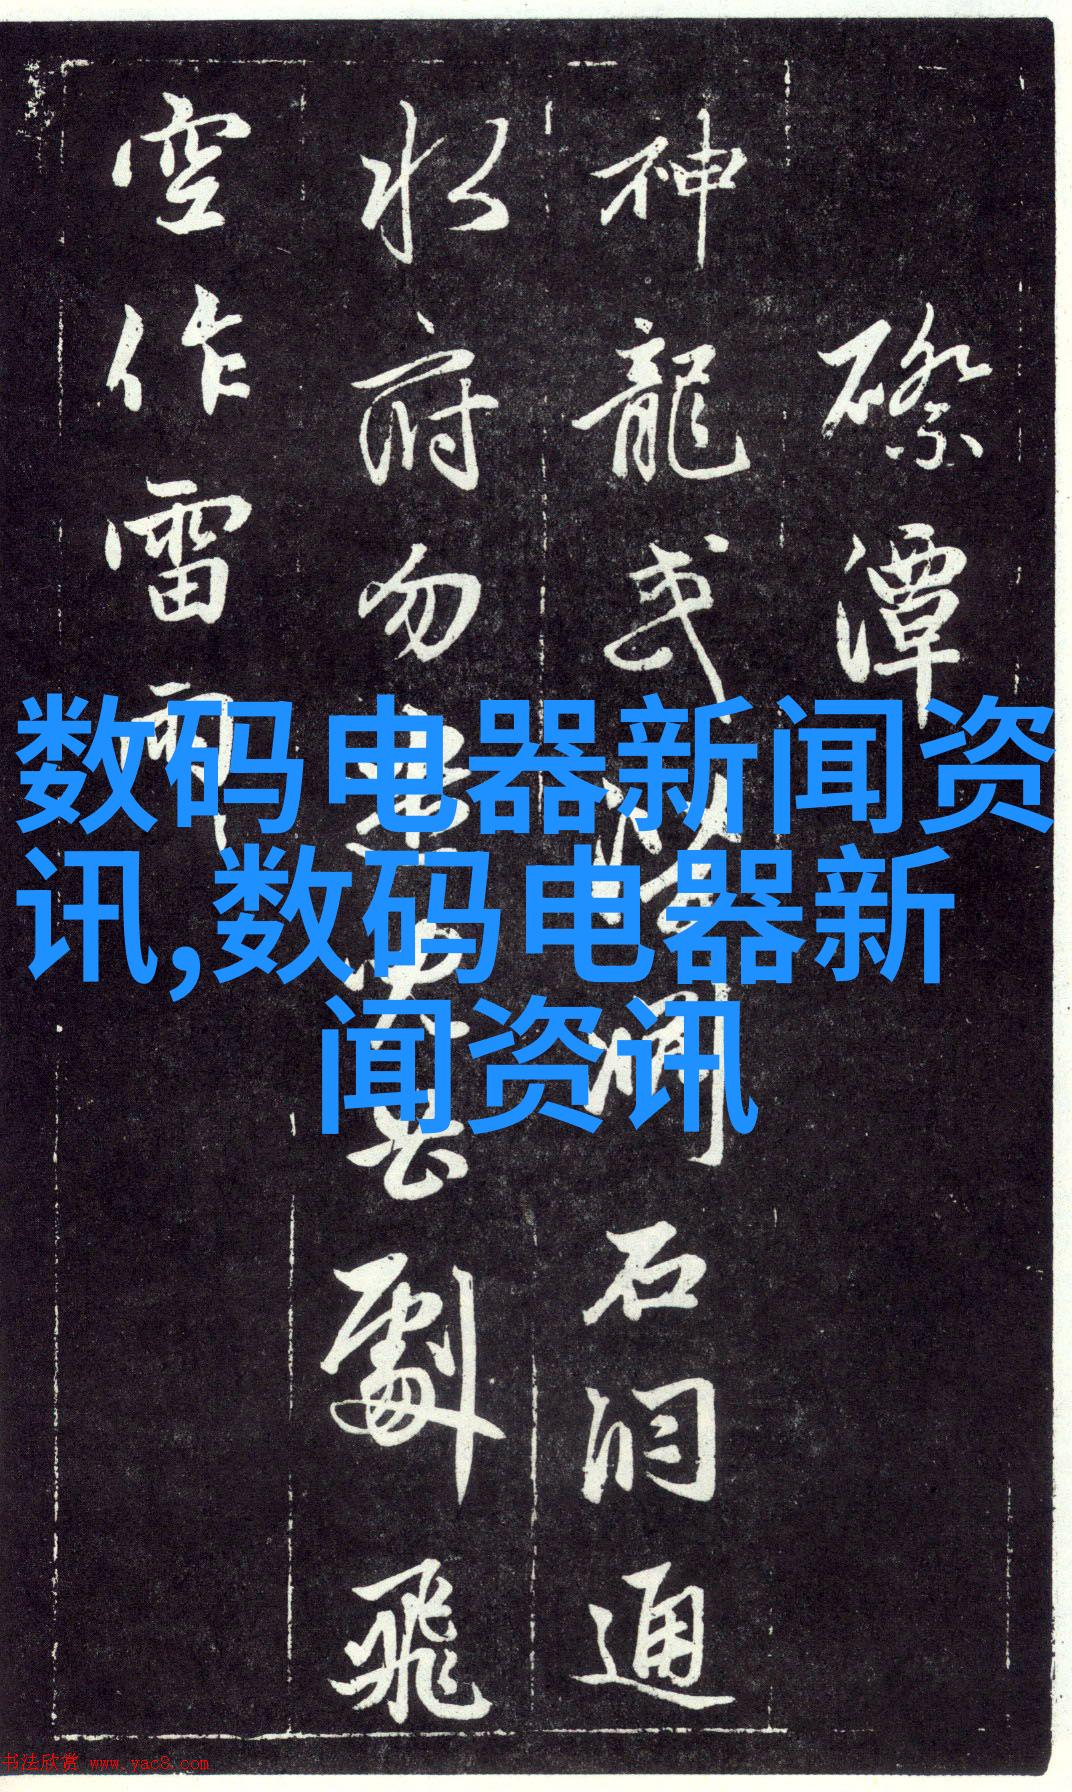 潭
神龍或石洞通
水府勿飛
空作雷雨
数码电器新闻资
讯,数码电器新
闻资讯
书法欣赏 www.yac8.com